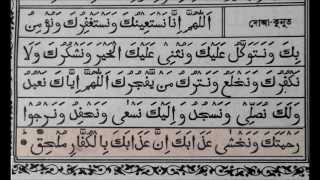 দোআ-কুনূত
اَللّٰهُمَّ اِنَّا نَسْتَعِيْنُكَ وَنَسْتَغْفِرُكَ وَنُؤْمِنُ
بِكَ وَنَتَوَكَّلُ عَلَيْكَ وَنُثْنِىْ عَلَيْكَ الْخَيْرَ وَنَشْكُرُكَ وَلَا
نَكْفُرُكَ وَنَخْلَعُ وَنَتْرُكُ مَنْ يَّفْجُرُكَ اَللّٰهُمَّ اِيَّاكَ نَعْبُدُ
وَلَكَ نُصَلِّىْ وَنَسْجُدُ وَاِلَيْكَ نَسْعٰى وَنَحْفِدُ وَنَرْجُوْا
رَحْمَتَكَ وَنَخْشٰى عَذَابَكَ اِنَّ عَذَابَكَ بِالْكُفَّارِ مُلْحِقٌ